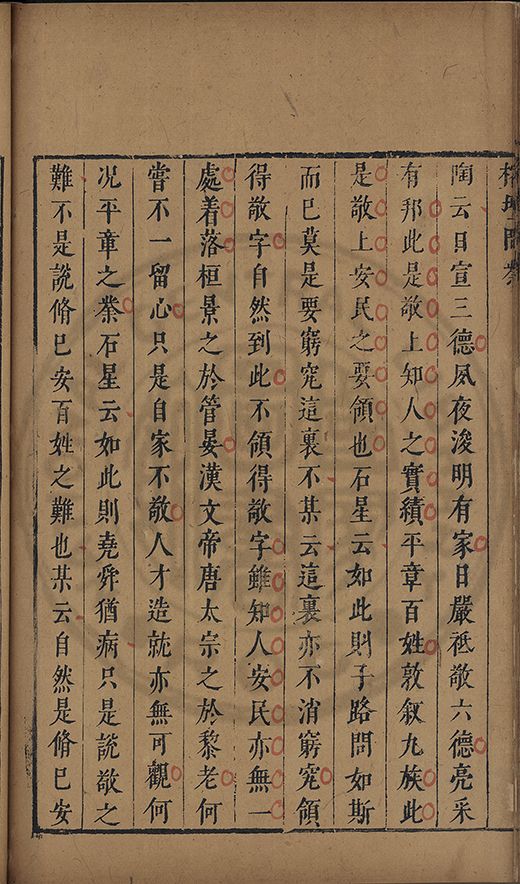 榕壇問業
陶云日宣三德夙夜浚明有家日嚴祗敬六德亮采
有邦此是敬上知人之實績平章百姓敦叙九族此
是敬上安民之要領也石星云如此則子路問如斯
而已莫是要窮究這裏不某云這裏亦不消窮究領
得敬字自然到此不領得敬字雖知人安民亦無一
處着落桓景之於管晏漢文帝唐太宗之於黎老何
嘗不一留心只是自家不敬人才造就亦無可觀何
况平章之業石星云如此則堯舜猶病只是說敬之
難不是說脩已安百姓之難也某云自然是脩已安